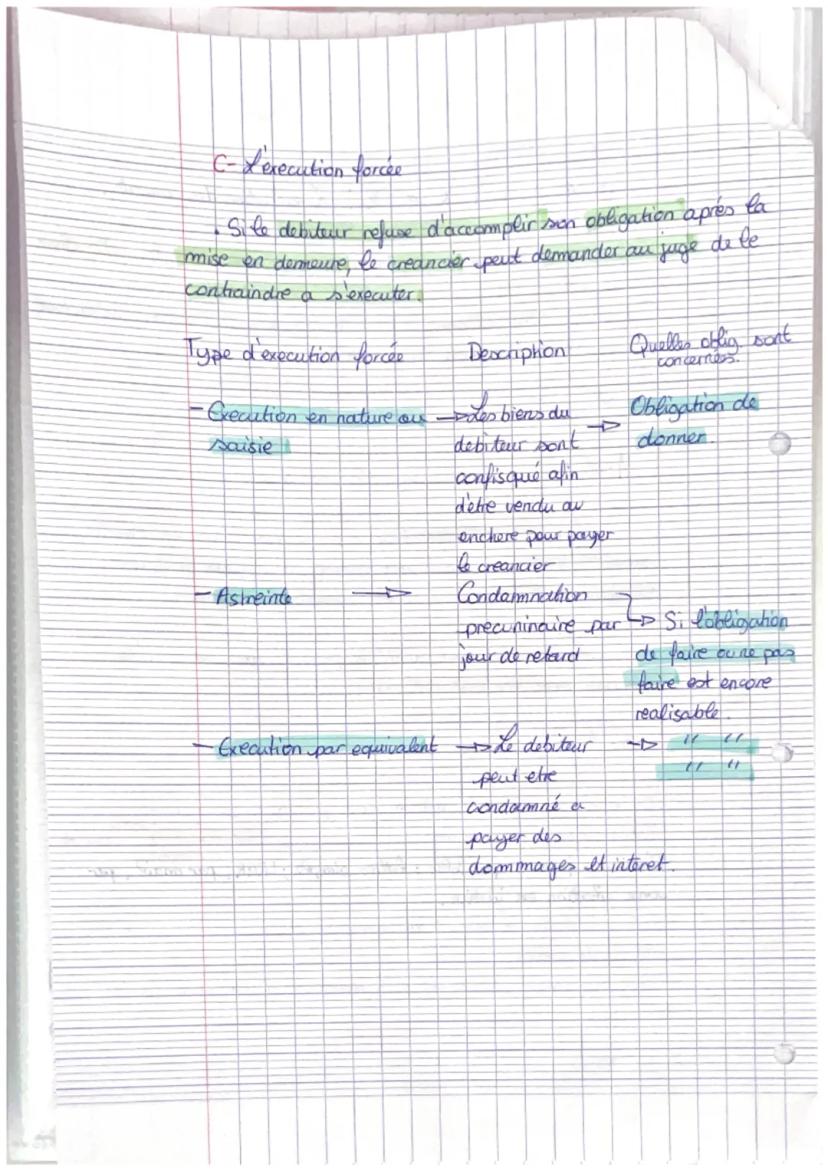 C- L'execution forcée
. Si le debiteur refuse d'accomplir son obligation après la
mise en demeure, le creancier peut demander au juge de le
contraindre a s'executer.
Type d'execution forcée Description Quelles oblig. sont
concernés.
- Execution en nature ou → Les biens du → Obligation de
saisie debiteur sont donner.
confisqué afin
d'etre vendu au
enchere pour payer
le creancier
- Astreinte → Condamnation
precuninaire par → Si l'obligation
jour de retard de faire ou ne pas
faire est encore
realisable.
- Execution par equivalent → Le debiteur → " "
peut etre " "
condamné a
payer des
dommages et interet.